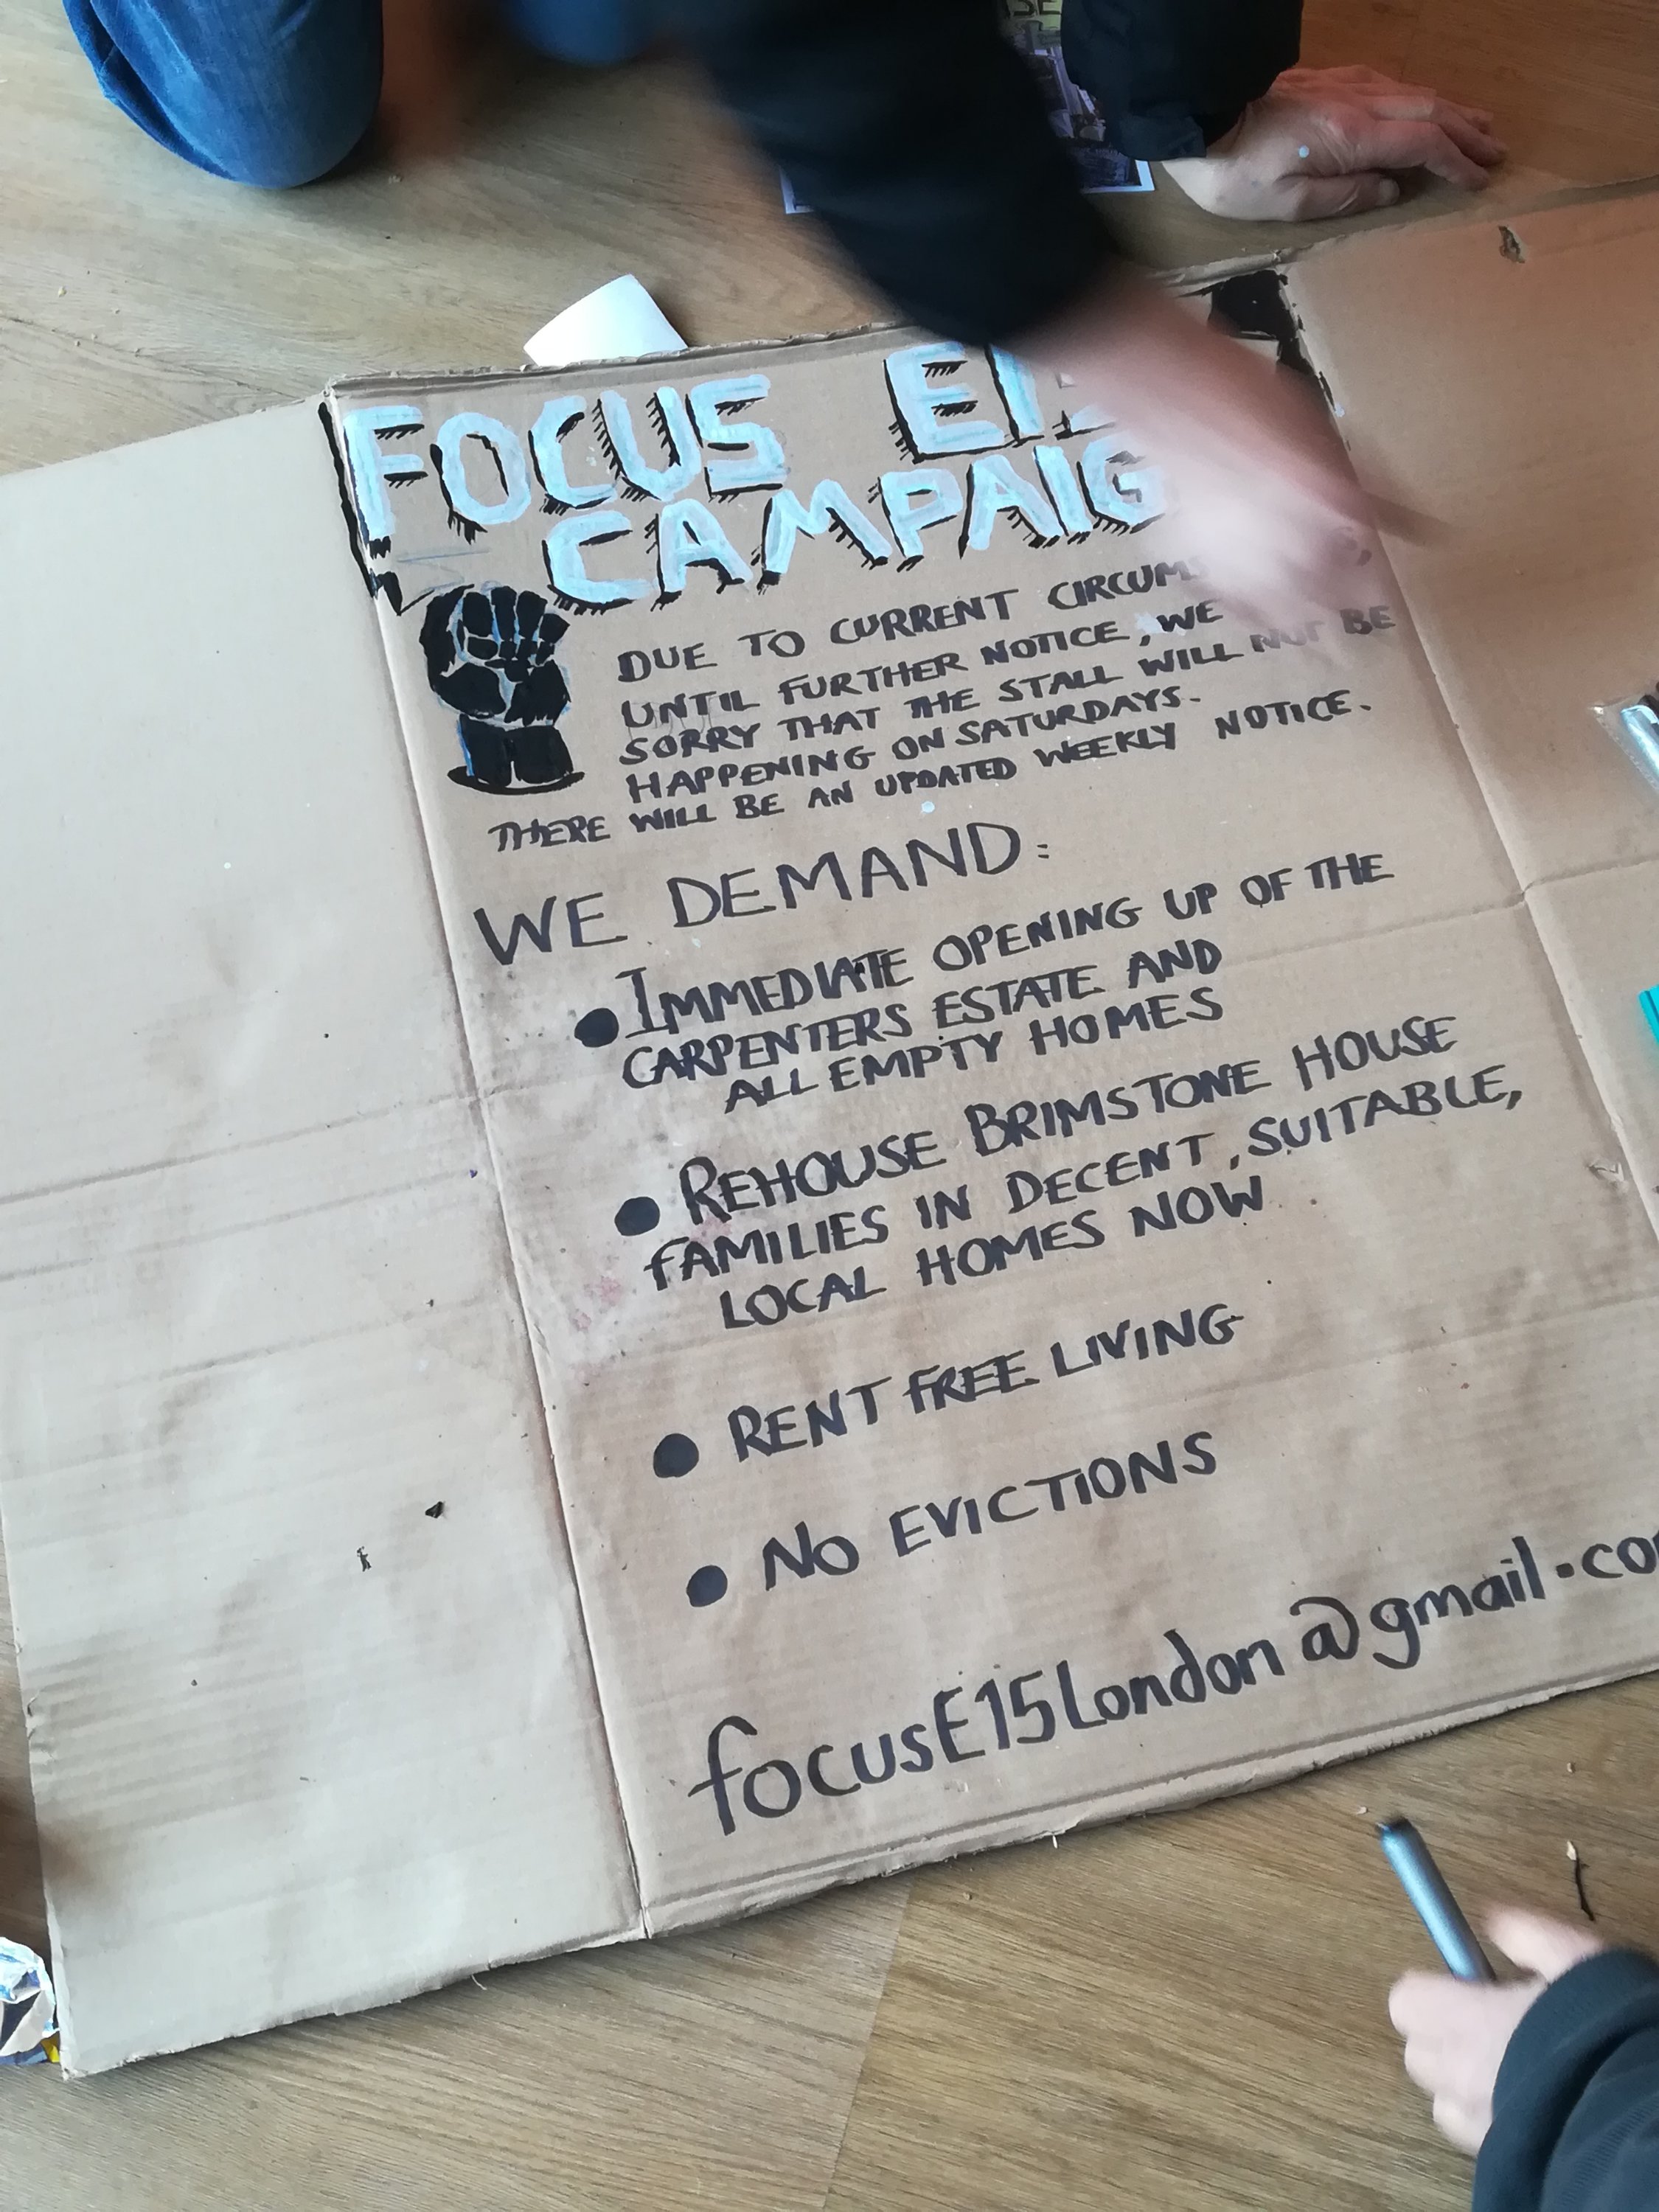 FOCUS
CAMPAIG
DUE TO CURRENT
UNTIL FURTHER NOTICE, WE
SORRY THAT THE STALL WILL NOT BE
HAPPENING ON SATURDAYS.
THERE WILL BE AN UPDATED WEEKLY NOTICE.
WE DEMAND:
● IMMEDIATE OPENING UP OF THE
CARPENTERS ESTATE AND
ALL EMPTY HOMES
● REHOUSE BRIMSTONE HOUSE
FAMILIES IN DECENT, SUITABLE,
LOCAL HOMES NOW
● RENT FREE LIVING
● NO EVICTIONS
focusE15London@gmail.co